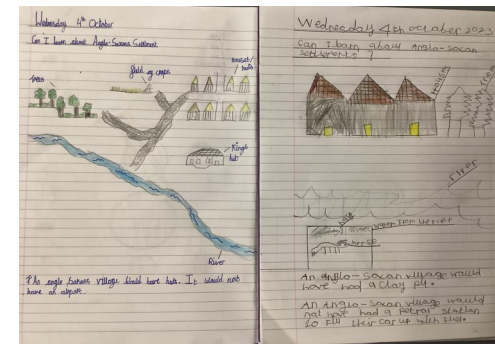 Wednesday 4th October
Can I learn about Anglo-Saxons Settlement
trees
field of crops
houses/
huts
King's
hut
River
An anglo Saxons village Would have huts. It would not
have an airport.
Wednesday 4th october 2023
Can I learn about Anglo-saxon
settlements?
Houses
river
An Anglo-Saxon village would
have had a clay pit.
An Anglo-Saxon village would
not have had a petrol station
to fill their car up with